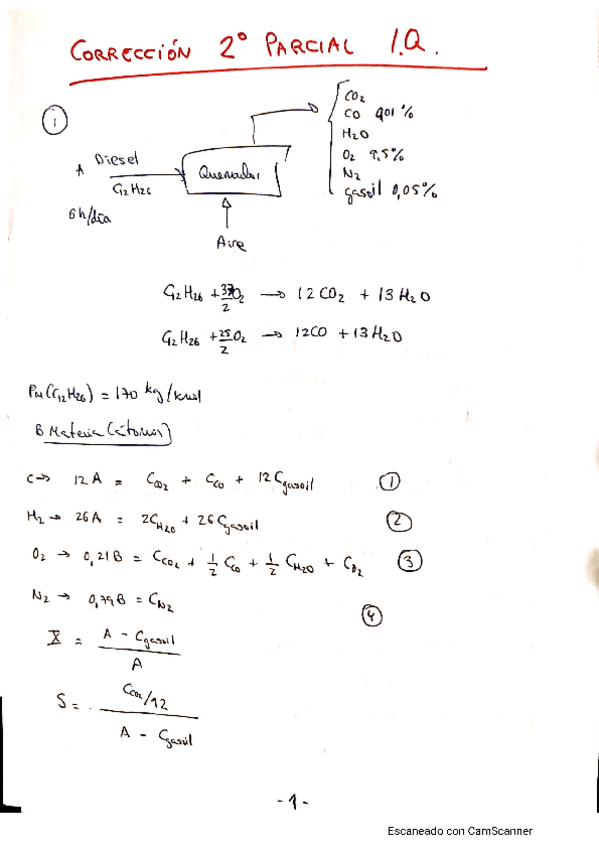 CORRECCIÓN 2º PARCIAL I.Q.
1
CO2
CO 0,01 %
H2O
O2 9,5%
N2
gasoil 0,05%
Diesel
A
C12H26
6h/día
Quemador
Aire
C12H26 + 37/2 O2 → 12CO2 + 13H2O
C12H26 + 25/2 O2 → 12CO + 13H2O
PM(C12H26) = 170 kg/kmol
B Materia (átomos)
C → 12A = CCO2 + CCO + 12Cgasoil ①
H2 → 26A = 2CH2O + 26Cgasoil ②
O2 → 0,21B = CCO2 + 1/2 CCO + 1/2 CH2O + CO2 ③
N2 → 0,79B = CN2 ④
X = A - Cgasoil / A
S = CCO2/12 / A - Cgasoil
- 1 -
Escaneado con CamScanner